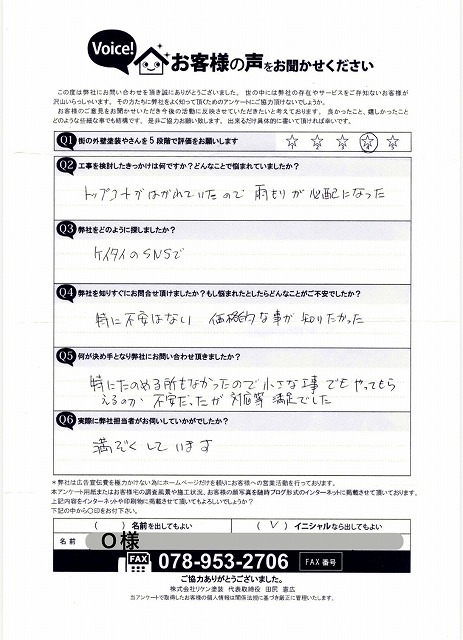 Voice!
お客様の声をお聞かせください
この度は弊社にお問い合わせを頂き誠にありがとうございました。 世の中には弊社の存在やサービスをご存知ないお客様が
沢山いらっしゃいます。 その方たちに弊社をよく知って頂くためのアンケートにご協力頂けないでしょうか。
お客様のご意見をお聞かせいただき今後の活動に反映させていただきたいと考えております。 良かったこと、嬉しかったこと
どのような些細な事でも結構です。 是非ご協力お願い致します。 出来るだけ具体的に書いて頂ければ幸いです。
Q1 街の外壁塗装やさんを5段階で評価をお願いします
1 2 3 4 5
Q2 工事を検討したきっかけは何ですか？どんなことで悩まれていましたか？
トップコートがはがれていたので 雨もりが心配になった
Q3 弊社をどのように探しましたか？
ケイタイのSNSで
Q4 弊社を知りすぐにお問合せ頂けましたか？もし悩まれたとしたらどんなことがご不安でしたか？
特に不安はない 価格的な事が知りたかった
Q5 何が決め手となり弊社にお問い合わせ頂きましたか？
特にたのめる所もなかったので小さな工事でもやってもら
えるのか 不安だったが 対応等 満足でした
Q6 実際に弊社担当者がお伺いしていかがでしたか？
満ぞくしています
＊弊社は広告宣伝費を極力かけない為にホームページだけを頼りにお客様への営業活動を行っております。
本アンケート用紙またはお客様宅の調査風景や施工状況、お客様の顔写真を随時ブログ形式のインターネットに掲載させて頂いております。
上記内容をインターネットや印刷物に掲載させて頂いてもよろしいでしょうか？
下記の中から〇印をお付下さい。
（ ）名前を出してもよい （ ∨ ）イニシャルなら出してもよい
名前 O様
FAX 078-953-2706 FAX番号
ご協力ありがとうございました。
株式会社リケン塗装 代表取締役 田尻 憲広
当アンケートで取得したお客様の個人情報は関係法規に基づき厳正に管理いたします。